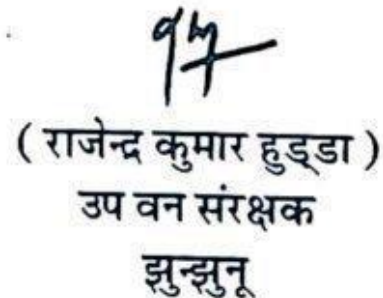 ( राजेन्द्र कुमार हुड्डा )
उप वन संरक्षक
झुन्झुनू